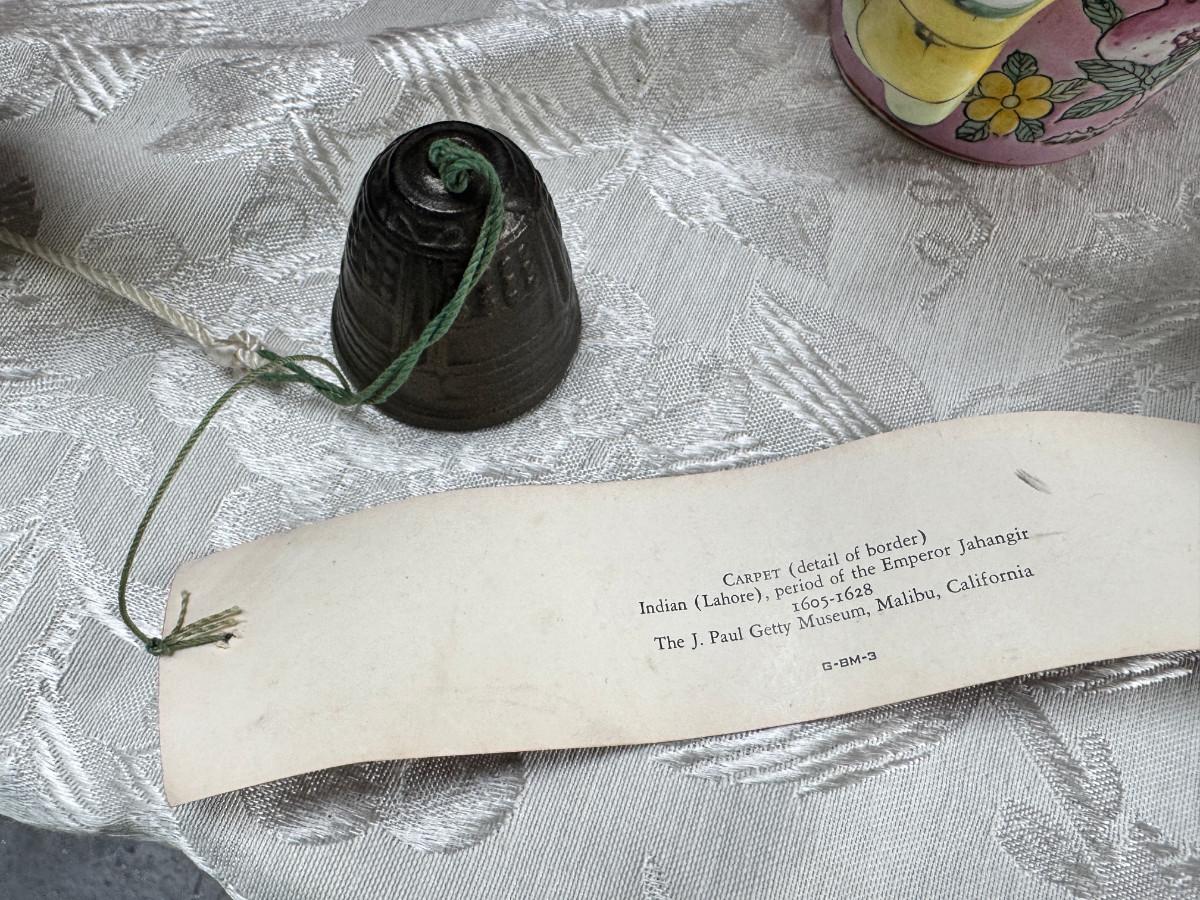 CARPET (detail of border)
Indian (Lahore), period of the Emperor Jahangir
1605-1628
The J. Paul Getty Museum, Malibu, California
G-BM-3